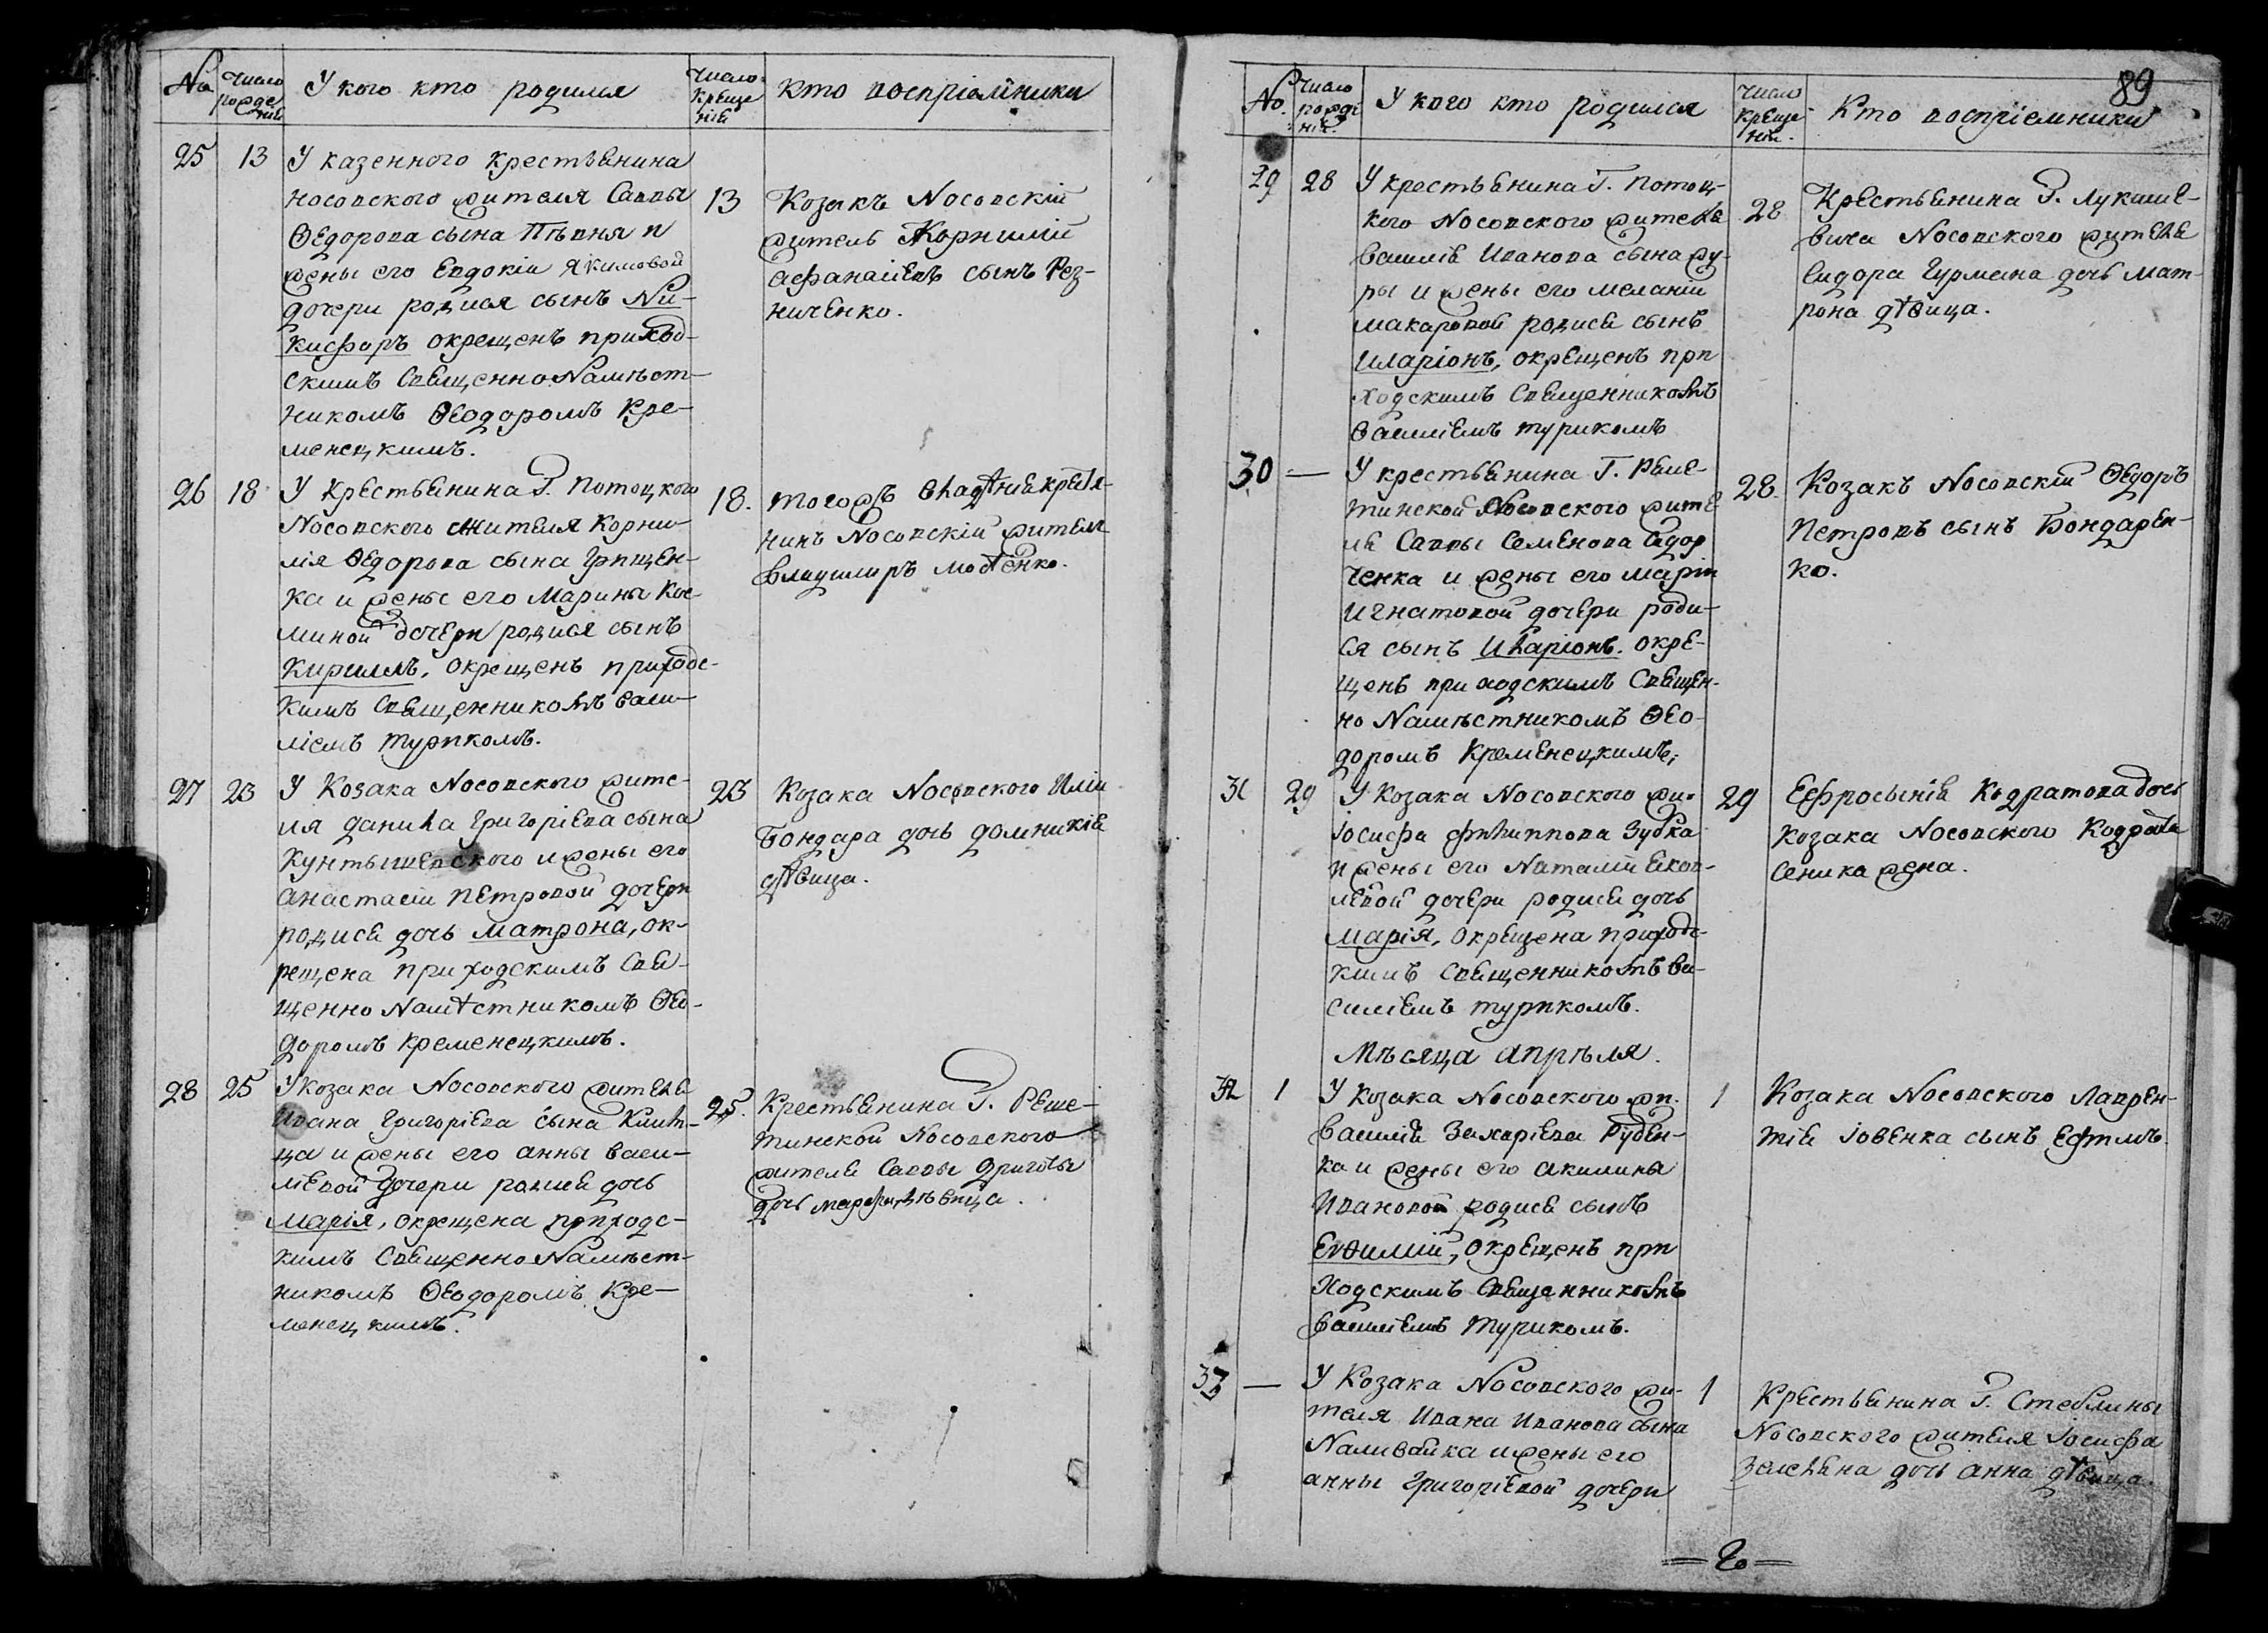 № Число рожденія У кого кто родился Число крещенія Кто воспріемники
25 13 У казенного крестьянина
Носовского жителя Саввы
Ѳедорова сына Пѣвня и
жены его Евдокіи Якимовой
дочери родился сынъ Ни-
кифоръ окрещенъ приход-
скимъ СвященноНамѣст-
никомъ Ѳеодоромъ Кре-
менецкимъ.
13 Козакъ Носовскій
житель Корнилій
Афанасіевъ сынъ Рез-
ниченко.
26 18 У крестьянина Г. Потоцкого
Носовского жителя Корни-
лія Ѳедорова сына Грищен-
ка и жены его Марины Кос-
миной дочери родился сынъ
Кириллъ, окрещенъ приходс-
кимъ Священникомъ Васи-
ліемъ Турикомъ.
18. Тогожъ владѣнія крестья-
нинъ Носовскій житель
Владимиръ
27 23 У Козака Носовского жите-
ля Данила Григоріева сына
Кунтышевского и жены его
Анастасіи Петровой дочери
родися дочь Матрона, ок-
рещена приходскимъ Свя-
щенноНамѣстникомъ Ѳео-
доромъ Кременецкимъ.
23 Козака Носовского Иліи
Бондара дочь Домникія
дѣвица.
28 25 У козака Носовского жителя
Ивана Григоріева сына
ца и жены его Анны Васи-
ліевой дочери родися дочь
Марія, окрещена приходс-
кимъ СвященноНамѣст-
никомъ Ѳеодоромъ Кре-
менецкимъ.
25. Крестьянина Г. Реше-
тинской Носовского
жителя Саввы
дочь Марфа дѣвица.
89
№. Число рожденія. У кого кто родился Число крещенія. Кто воспріемники
29 28 У крестьянина Г. Потоц-
кого Носовского жителя
Василія Иванова сына Жу-
ры и жены его Меланіи
Макаровой родися сынъ
Иларіонъ, окрещенъ при
ходскимъ Священникомъ
Василіемъ Турикомъ
28 Крестьянина Г. Лукаше-
вича Носовского жителя
Сидора Гурмана дочь Мат-
рона дѣвица.
30 — У крестьянина Г. Реше-
тинской Носовского жите
ля Саввы Семенова Сидор
ченка и жены его Маріи
Игнатовой дочери роди-
ся сынъ Иларіонъ. окре-
щенъ приходскимъ Священ-
но Намѣстникомъ Ѳео-
доромъ Кременецкимъ;
28 Козакъ Носовскій Ѳедоръ
Петровъ сынъ Бондарен-
ко.
31 29 У Козака Носовского жи-
Іосифа Филиппова Зубка
и жены его Наталіи Яков-
левой дочери родися дочь
Марія, окрещена приходс-
кимъ Священникомъ Ва-
силіемъ Турикомъ.
29 Ефросынія Кодратова дочь
Козака Носовского Кодрата
Сеника жена.
Мѣсяца Апрѣля.
32 1 У Козака Носовского жи.
Василія Захаріева Руден-
ка и жены его Акилины
Ивановой родися сынъ
Евѳимій, окрещенъ при
ходскимъ Священникомъ
Василіемъ Турикомъ.
1 Козака Носовского Лаврен-
тія Іовенка сынъ Ефимъ.
33 — У Козака Носовского жи-
теля Ивана Иванова сына
Наливайка и жены его
Анны Григоріевой дочери
1 Крестьянина Г. Стеблины
Носовского жителя Іосифа
дочь Анна дѣвица.